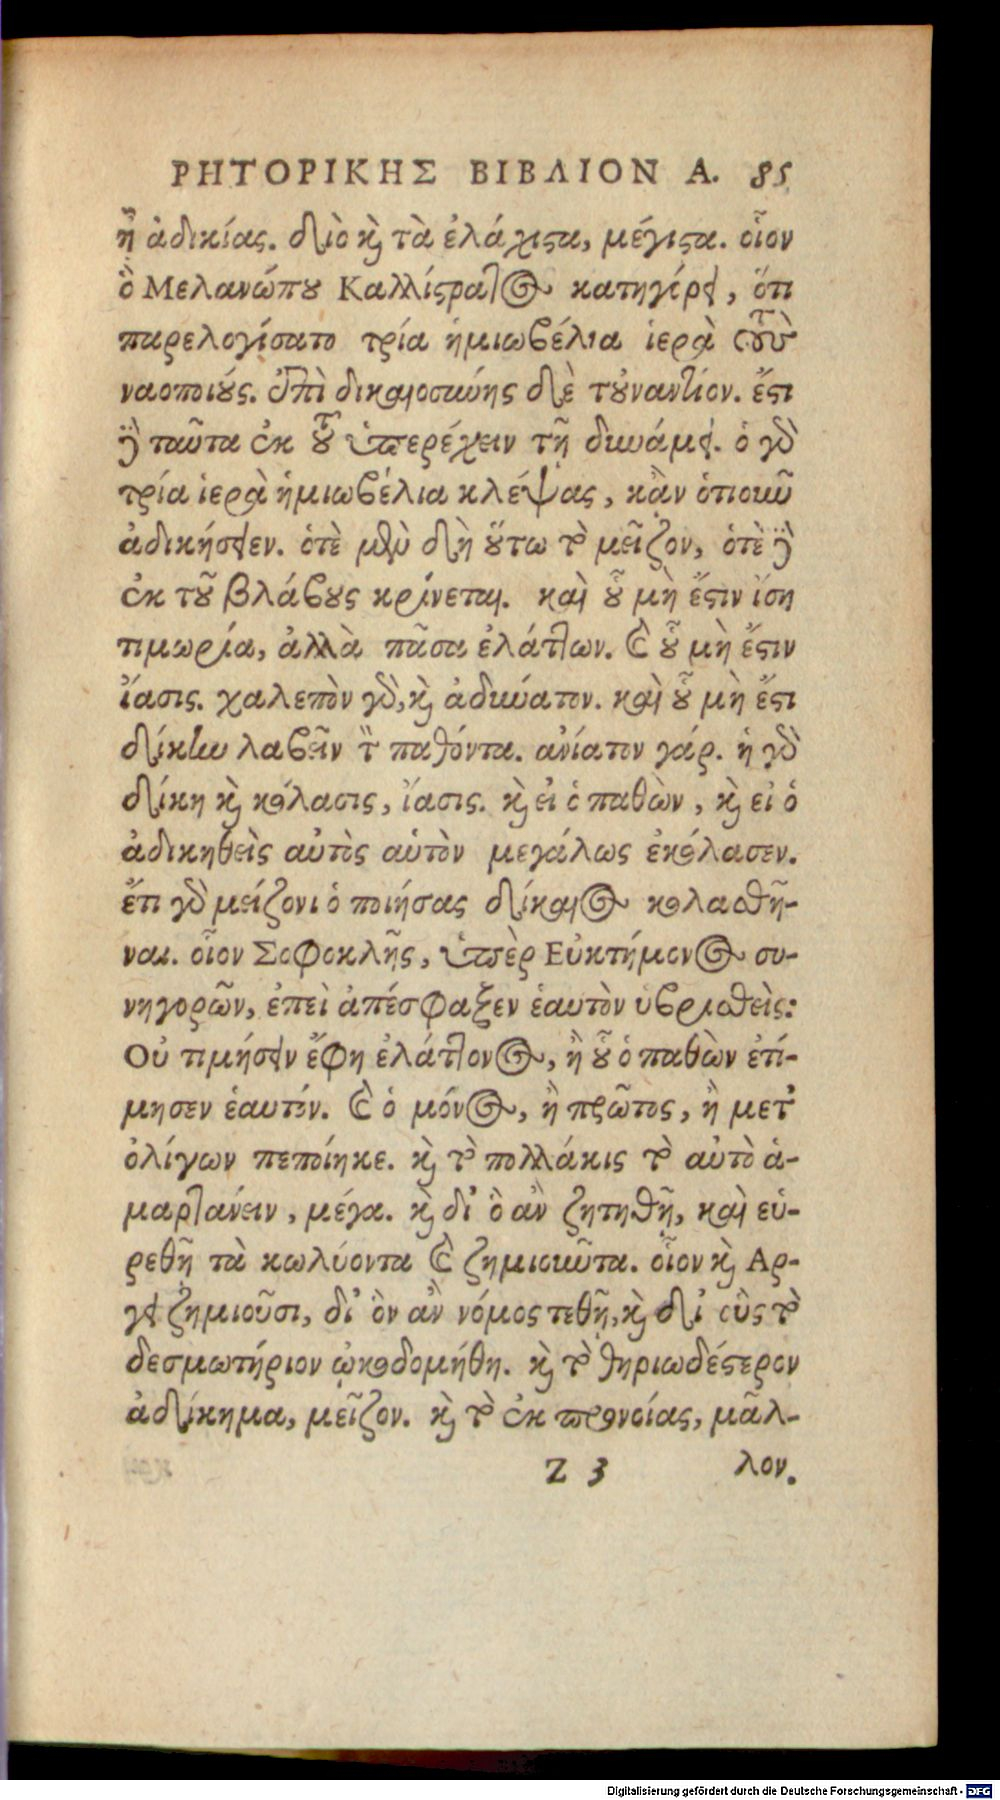 ΡΗΤΟΡΙΚΗΣ ΒΙΒΛΙΟΝ Α. 85
ἢ ἀδικίας. διὸ καὶ τὰ ἐλάχιστα, μέγιστα. οἷον
ὁ Μελανώπου Καλλίστρατος κατηγόρει, ὅτι
παρελογίσατο τρία ἡμιωβέλια ἱερὰ τοὺς
ναοποιούς. ἐπὶ δικαιοσύνης δὲ τοὐναντίον. ἔστι
δὲ ταῦτα ἐκ τοῦ ὑπερέχειν τῇ δυνάμει. ὁ γὰρ
τρία ἱερὰ ἡμιωβέλια κλέψας, κἂν ὁτιοῦν
ἀδικήσειεν. ὁτὲ μὲν δὴ οὕτω τὸ μεῖζον, ὁτὲ δὲ
ἐκ τοῦ βλάβους κρίνεται. καὶ οὗ μὴ ἔστιν ἴση
τιμωρία, ἀλλὰ πᾶσα ἐλάττων. καὶ οὗ μὴ ἔστιν
ἴασις. χαλεπὸν γὰρ, καὶ ἀδύνατον. καὶ οὗ μὴ ἔστι
δίκην λαβεῖν τὸν παθόντα. ἀνίατον γάρ. ἡ γὰρ
δίκη καὶ κόλασις, ἴασις. καὶ εἰ ὁ παθὼν, καὶ εἰ ὁ
ἀδικηθεὶς αὐτὸς αὑτὸν μεγάλως ἐκόλασεν.
ἔτι γὰρ μείζονι ὁ ποιήσας δίκαιος κολασθῆ-
ναι. οἷον Σοφοκλῆς, ὑπὲρ Εὐκτήμονος συ-
νηγορῶν, ἐπεὶ ἀπέσφαξεν ἑαυτὸν ὑβρισθεὶς:
Οὐ τιμήσειν ἔφη ἐλάττονος, ἢ οὗ ὁ παθὼν ἐτί-
μησεν ἑαυτόν. καὶ ὁ μόνος, ἢ πρῶτος, ἢ μετ'
ὀλίγων πεποίηκε. καὶ τὸ πολλάκις τὸ αὐτὸ ἁ-
μαρτάνειν, μέγα. καὶ δι' ὃ ἂν ζητηθῇ, καὶ εὑ-
ρεθῇ τὰ κωλύοντα καὶ ζημιοῦντα. οἷον καὶ Αρ-
γει ζημιοῦσι, δι' ὃν ἂν νόμος τεθῇ, καὶ δι' οὓς τὸ
δεσμωτήριον ᾠκοδομήθη. καὶ τὸ θηριωδέστερον
ἀδίκημα, μεῖζον. καὶ τὸ ἐκ προνοίας, μᾶλ-
Z 3 λον.
Digitalisierung gefördert durch die Deutsche Forschungsgemeinschaft - DFG